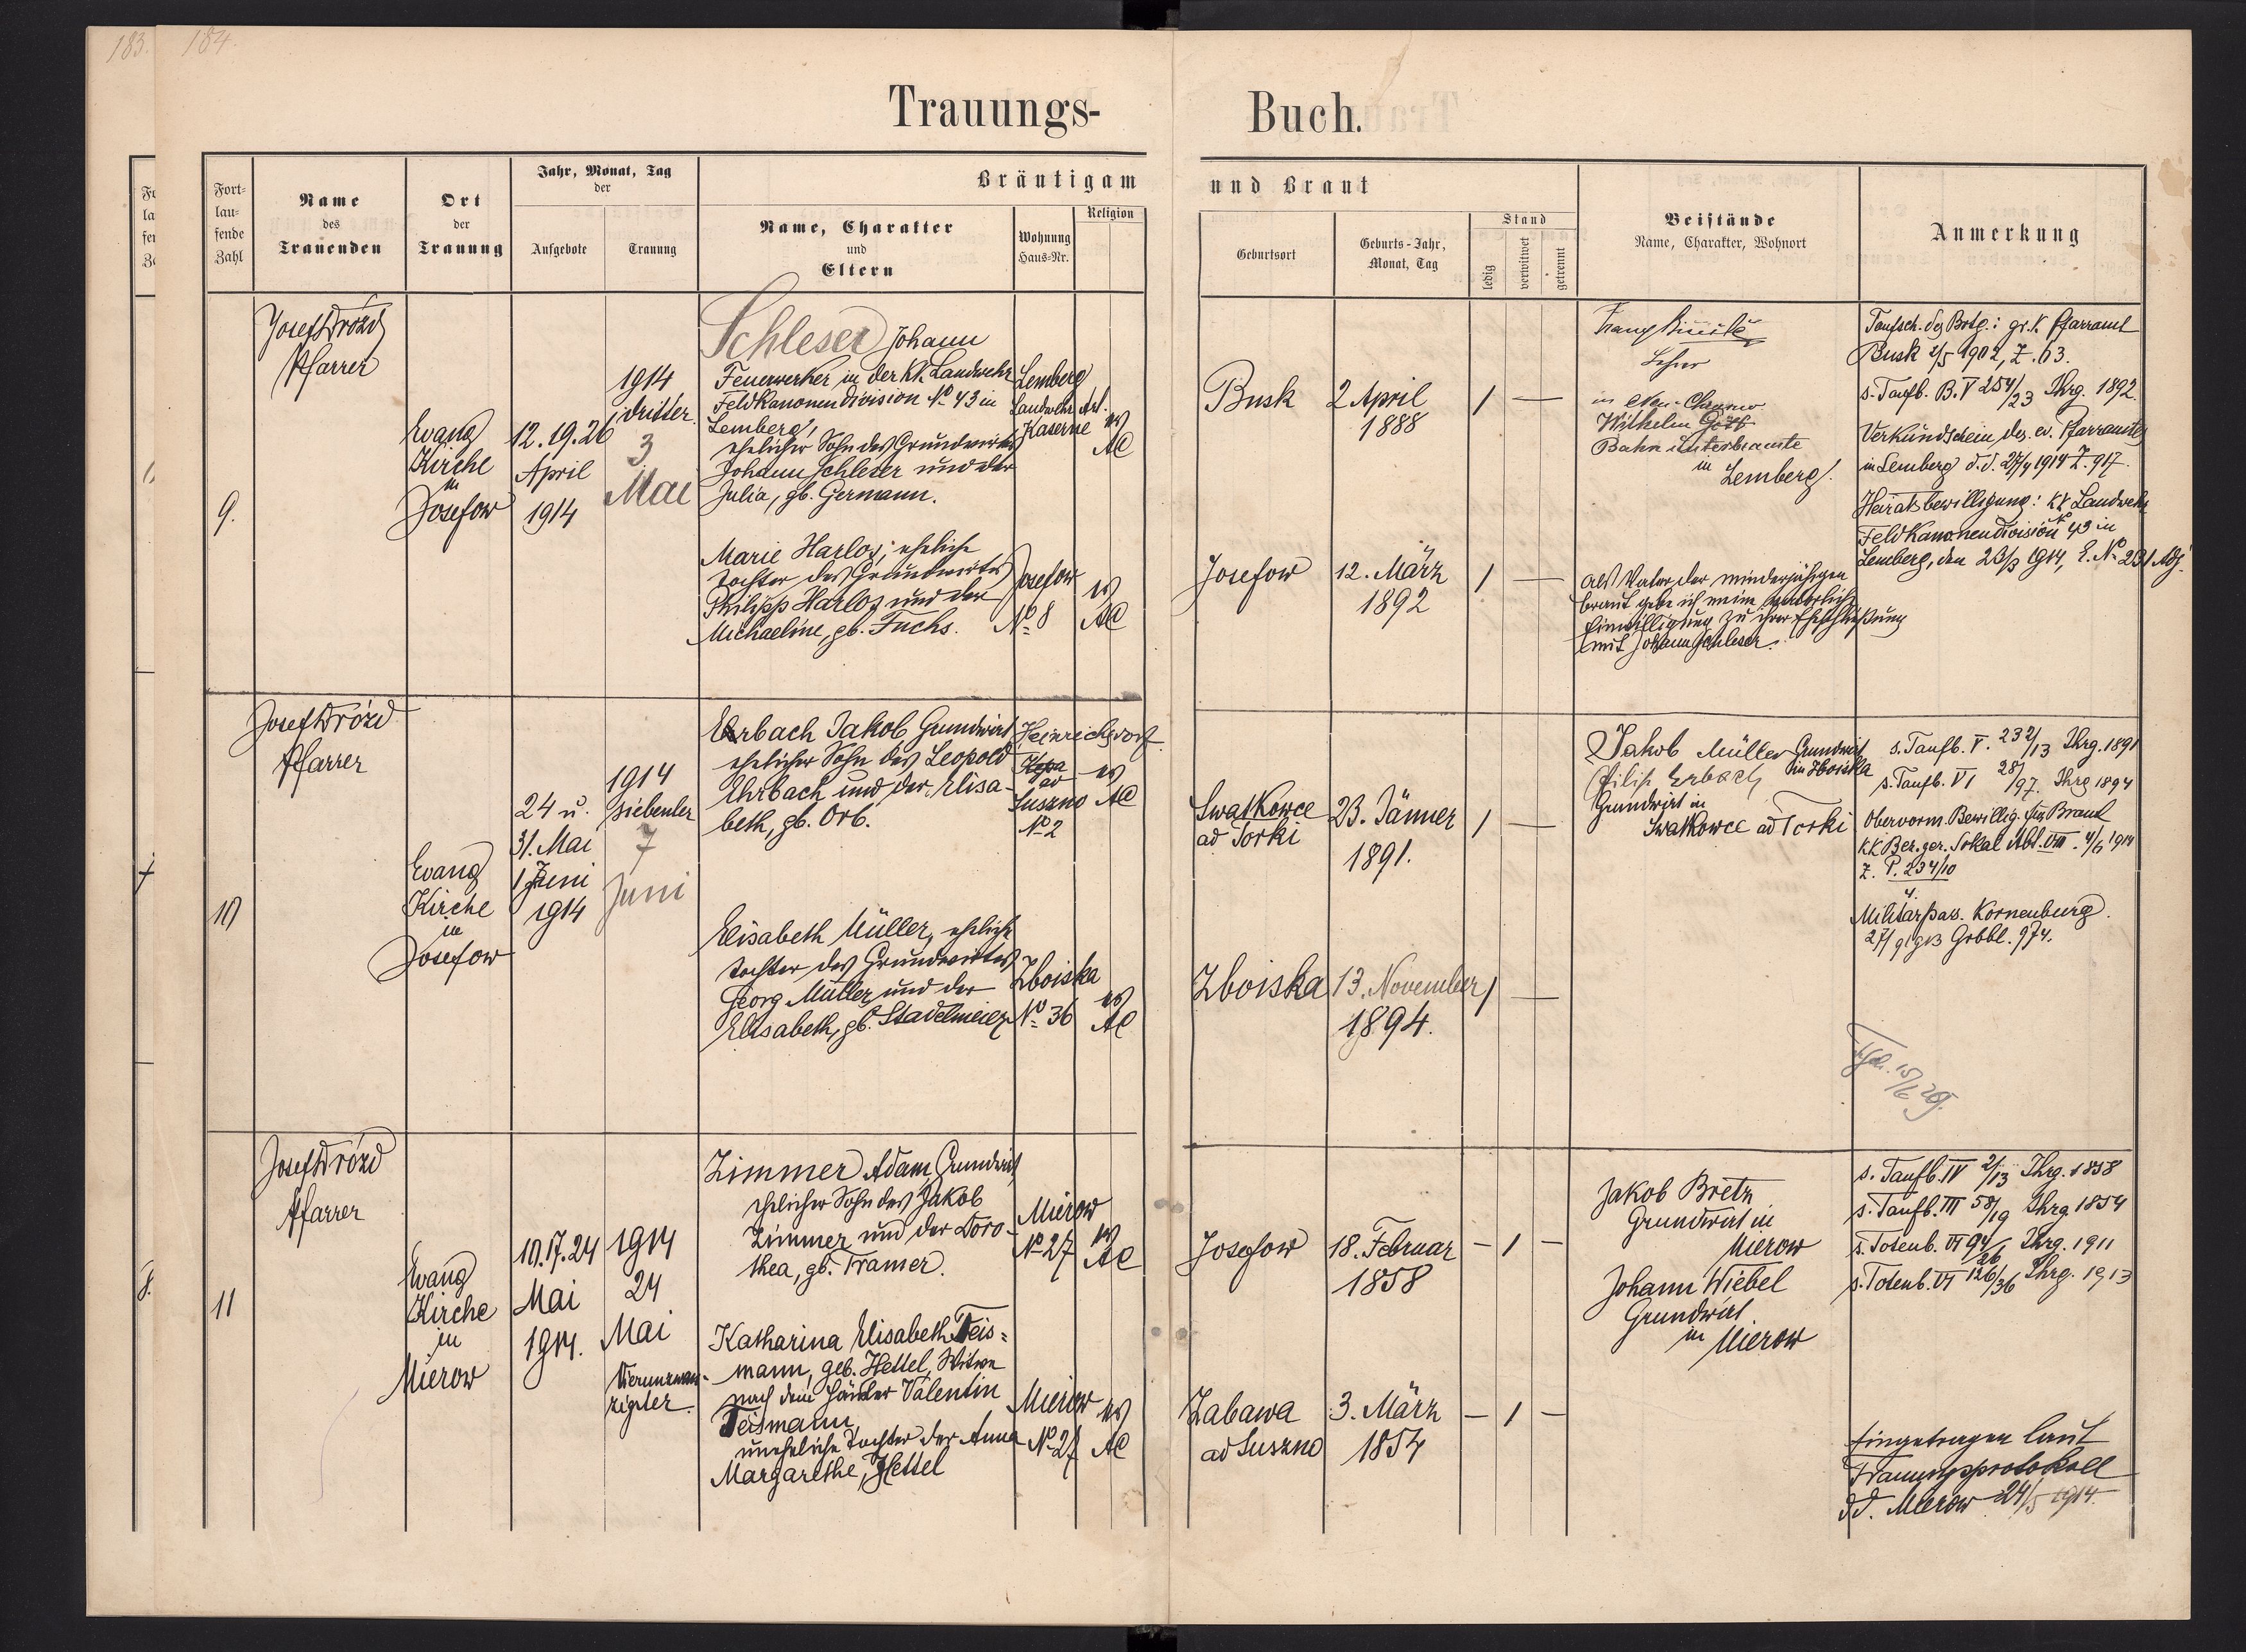 183.
184.
Trauungs-
Buch.
Fort-
lau-
fende
Zahl
Name
des
Trauenden
Ort
der
Trauung
Jahr, Monat, Tag
der
Aufgebote
Trauung
Bräutigam
Name, Charakter
und
Eltern
Wohnung
Haus-Nr.
Religion
und Braut
Geburtsort
Geburts-Jahr,
Monat, Tag
Stand
ledig
verwitwet
getrennt
Beistände
Name, Charakter, Wohnort
Anmerkung
9.
Josef Drózd
Pfarrer
Evang
Kirche
in
Josefow
12. 19. 26
April
1914
1914
dritter
3
Mai
Schleser Johann
Feuerwerker in der kk. Landwehr
Feldkanonendivision No 43 in
Lemberg,
ehelicher Sohn des Grundwirtes
Johann Schleser und der
Julia, gb. Germann.
Lemberg
Landwehr Art.
Kaserne
ev
AC
Busk
2 April
1888
1
—
Lehrer
in
Wilhelm
Bahn
in
Lemberg.
Taufsch. des Brtg.: gr. k. Pfarramt
Busk 2/5 1902, Z. 63.
s. Taufb. B. V 254/23 Jhrg. 1892.
Verkundschein des ev. Pfarramtes
in Lemberg d. d. 27/4 1914 Z. 917.
Heiratsbewilligung: kk Landwehr
Feldkanonendivision No 43 in
Lemberg, den 23/3 1914, E. No 231 Adj.
Marie Harlos, eheliche
Tochter des Grundwirtes
Philipp Harlos und der
Michaeline, gb. Fuchs.
Josefow
No 8
ev
AC
Josefow
12. März
1892
1
—
Als Vater der minderjährigen
Braut gebe ich meine väterliche
Einwilligung zu ihrer Eheschließung
mit Johann Schleser.
10
Josef Drózd
Pfarrer
Evang
Kirche
in
Josefow
24 u.
31. Mai
1 Juni
1914
1914
siebenter
7
Juni
Erbach Jakob, Grundwirt,
ehelicher Sohn des Leopold
Ehrbach und der Elisa-
beth, gb. Orb.
Heinrichsdorf
Kępa
ad
Suszno
No 2
ev
AC
Swatkowce
ad Torki
23. Jänner
1891.
1
—
Jakob Müller Grundwirt
in Zboiska
Filip Erbach
Grundwirt in
Swatkowce ad Torki
s. Taufb. V. 232/13 Jhrg. 1891
s. Taufb. VI 28/97. Jhrg 1894
Obervorm. Bewillig. für Braut
kk Bez. ger. Sokal Abt. VIII. 4/6 1914
Z. P. 234/10
4.
Militärpass. Korneuburg.
27/9 1913 Grbbl. 974.
Elisabeth Müller, eheliche
Tochter des Grundwirtes
Georg Müller und der
Elisabeth, gb. Stadelmeier
Zboiska
No 36
ev
AC
Zboiska
13. November
1894.
1
—
11
Josef Drózd
Pfarrer
Evang
Kirche
in
Mierow
10. 17. 24
Mai
1914.
1914
24
Mai
Vierundzwan-
zigster.
Zimmer Adam, Grundwirt
ehelicher Sohn des Jakob
Zimmer und der Doro-
thea, gb. Tramer.
Mierow
No 27
ev
AC
Josefow
18. Februar
1858
— 1 —
Jakob Bretz
Grundwirt in
Mierow
Johann Wiebel
Grundwirt
in Mierow
s. Taufb. IV 2/13 Jhrg. 1858
s. Taufb. III 58/19 Jhrg 1854
s. Totenb. VI 94/26 Jhrg. 1911
s. Totenb. VI 126/36 Jhrg. 1913
Katharina Elisabeth Teis-
mann, geb. Hettel, Witwe
nach dem Häusler Valentin
Teismann
uneheliche Tochter der Anna
Margarethe, Hettel
Mierow
No 27
ev
AC
Zabawa
ad Suszno
3. März
1854
— 1 —
Eingetragen laut
Trauungsprotokoll
dd. Mierow 24/5 1914.